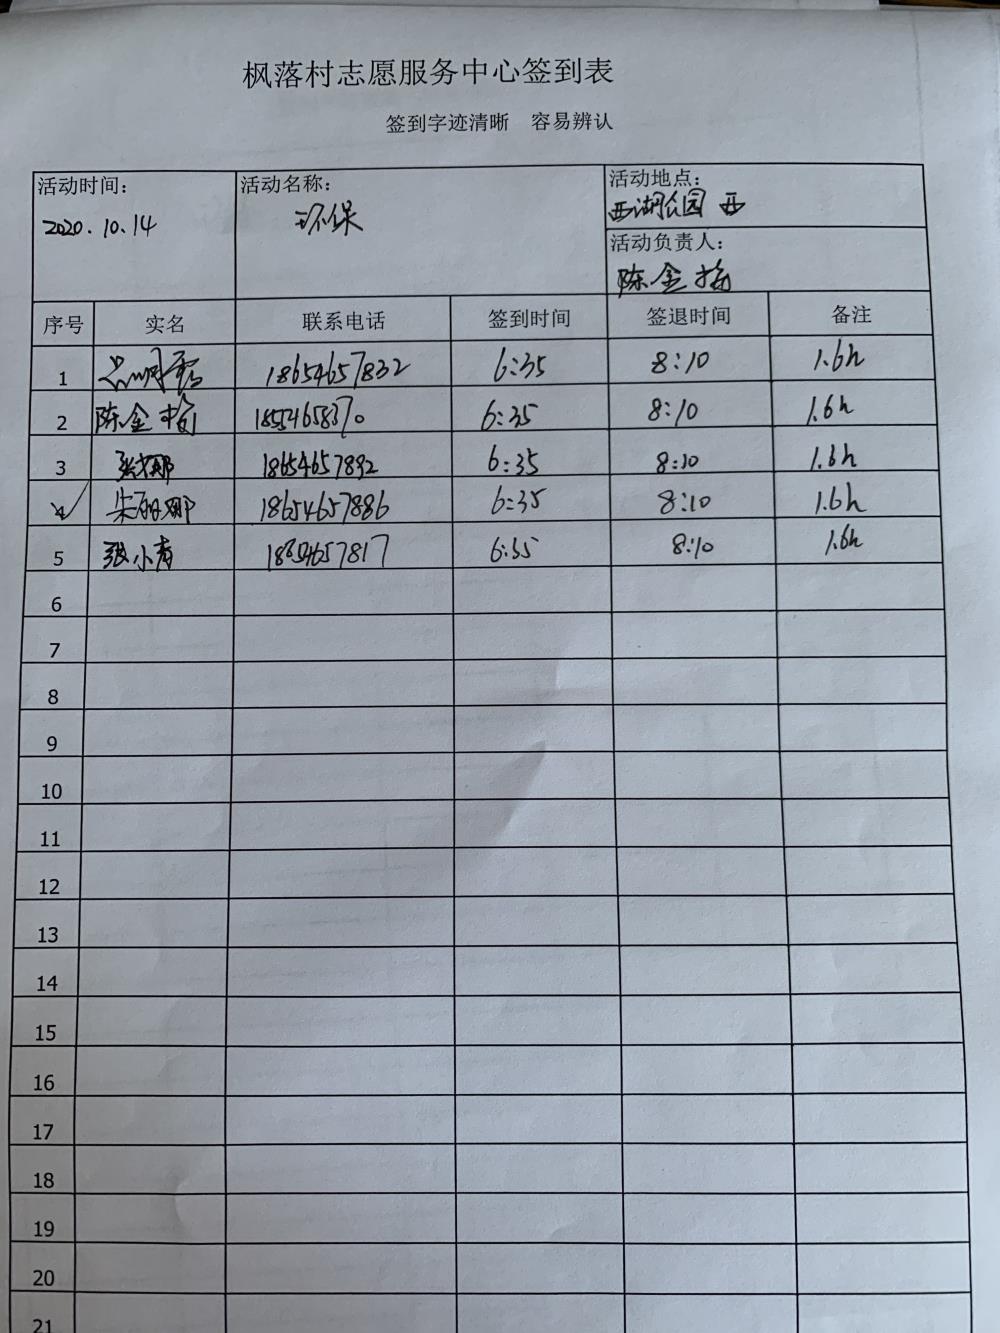 枫落村志愿服务中心签到表
签到字迹清晰 容易辨认
活动时间： 活动名称： 活动地点：
2020.10.14 环保 西湖公园 西
活动负责人：
陈金梅
序号 实名 联系电话 签到时间 签退时间 备注
1 18654657832 6:35 8:10 1.6h
2 陈金梅 6:35 8:10 1.6h
3 18654657892 6:35 8:10 1.6h
4 朱丽娜 18654657886 6:35 8:10 1.6h
5 张小青 18654657817 6:35 8:10 1.6h
6
7
8
9
10
11
12
13
14
15
16
17
18
19
20
21